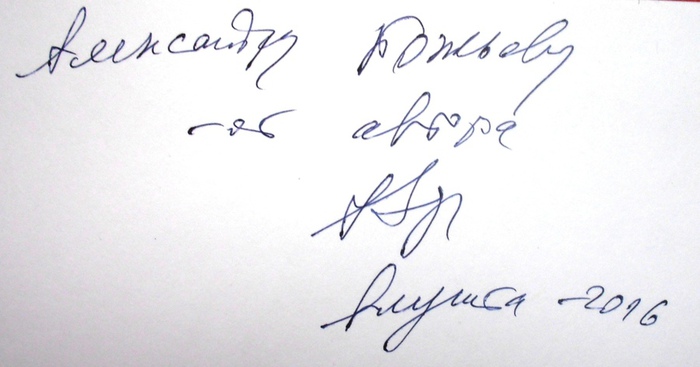 Александру Божьеву
-от автора
Алушта -2016